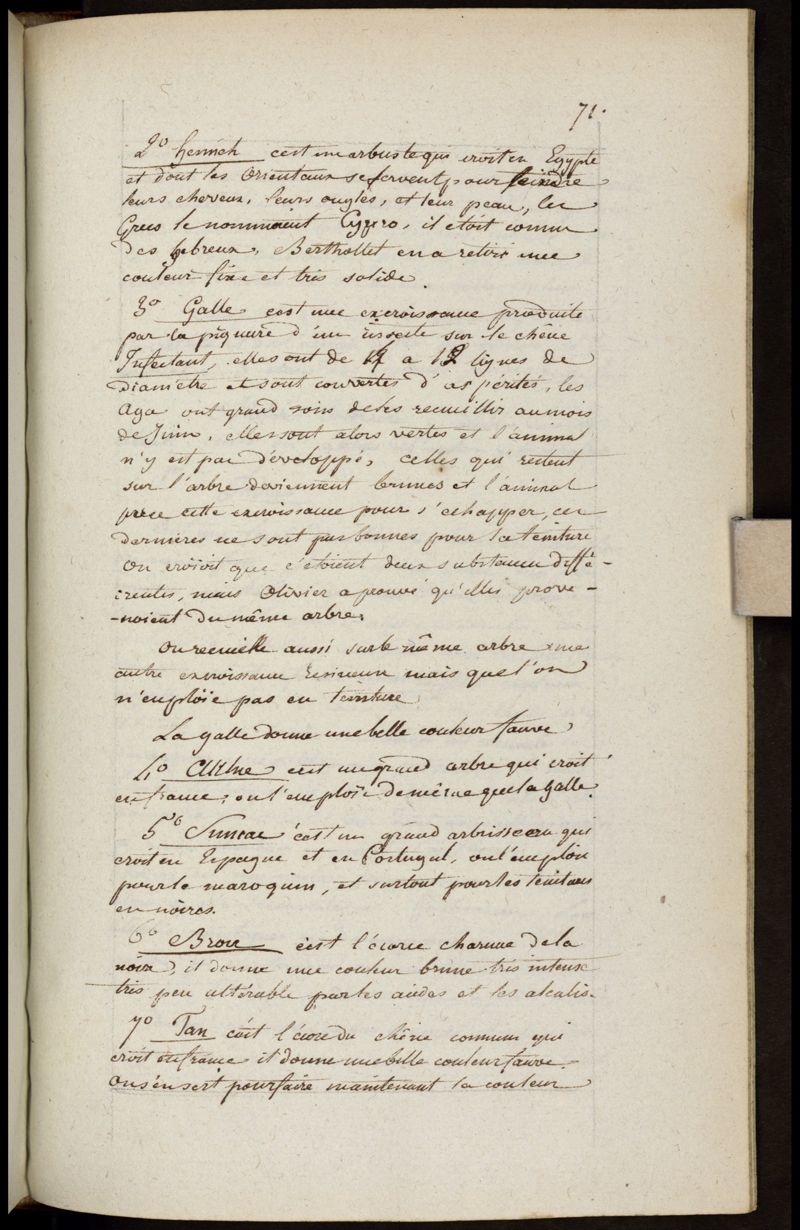 71.
2° henneh c'est un arbuste qui croit en Egypte
et dont les Orientaux se servent pour teindre
leurs cheveux, leurs ongles, et leur peau, les
Grecs le nommoient Cypro, il etoit connu
des hébreux, Berthollet en a retiré une
couleur fixe et très solide.
3° Galle c'est une excroissance produite
par la piqueure d'un insecte sur le chêne
Infectant, elles ont de 4 a 12 lignes de
Diamètre et sont couvertes d'aspérités, les
Aga ont grand soins de les recueillir au mois
de Juin, elles sont alors vertes et l'animal
n'y est pas développé, celles qui restent
sur l'arbre deviennent brunes et l'animal
perce cette excroissance pour s'echapper, ces
dernières ne sont pas bonnes pour la teinture
on croioit que c'etoient deux substances diffé-
-rentes, mais Olivier a prouvé qu'elles prove-
-noient du même arbre.
On recueille aussi sur le même arbre une
autre excroissance resineux mais que l'on
n'emploïe pas en teinture.
La galle donne une belle couleur fauve
4° Aulne c'est un grand arbre qui croit
en france, on l'emploïe de même que la galle.
5° Sumac c'est un grand arbrisseau qui
croit en Espagne et en Portugal, on l'emploie
pour le maroquin, et surtout pour les teintures
en noires.
6° Brou c'est l'écorce charnue de la
noix, il donne une couleur brune très intense
très peu altérable par les acides et les alcalis.
7° Tan c'est l'écorce du chêne commun qui
croit en france il donne une belle couleur fauve.
On s'en sert pour faire maintenant la couleur